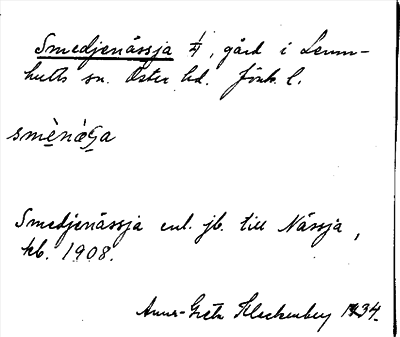 Smedjenässja 1/4, gård i Lemn-
hults sn. Öster hd. Jönk. l.
smènàʂa
Smedjenässja enl. jb. till Nässja,
kb. 1908.
Anna-Greta Kleckenberg 1934.